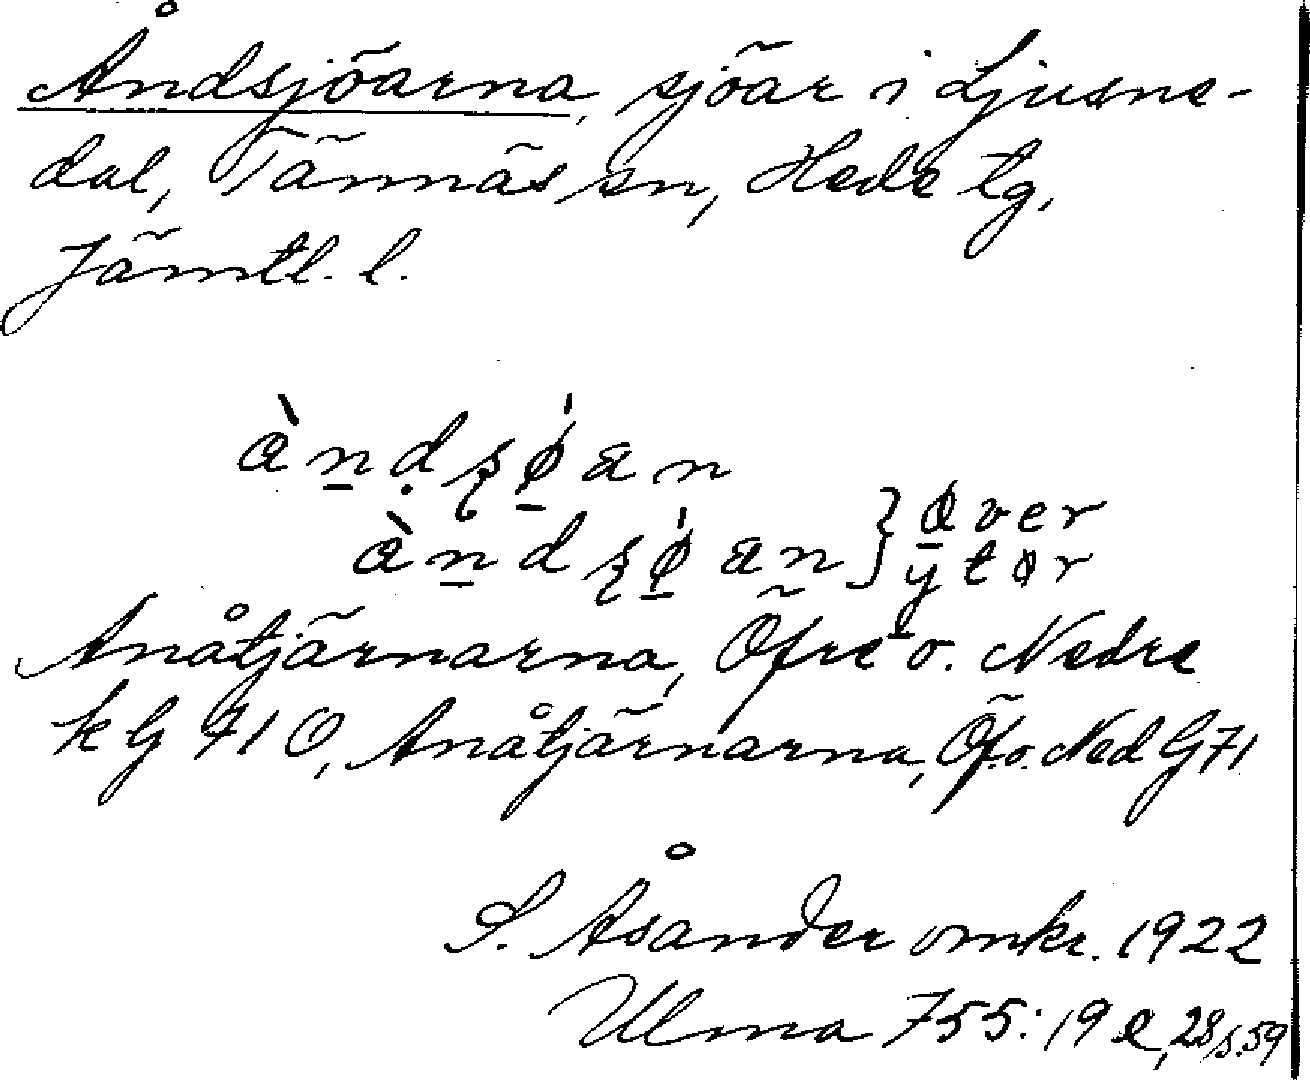 Åndsjöarna, sjöar i Ljusne-
dal, Tännäs sn, Hede tg,
Jämtl. l.
àn̲ḍʂǿ̲an
àn̲dʂǿ̲an } ø̲ver
y̲tør
Anåtjärnarna, Öfre o. Nedre
k G 71 O, Anåtjärnarna, Öf. o. Ned G 71
S. Åsander omkr. 1922
Ulma 755: 19 e, 28 s. 59